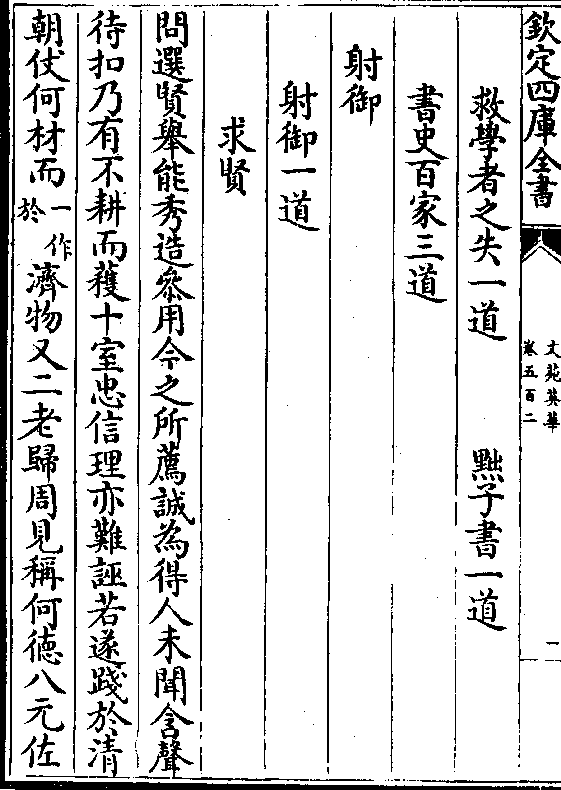 欽定四庫全書
文苑英華
卷五百二
一
救學者之失一道　黜子書一道
書史百家三道
射御
射御一道
求賢
問選賢舉能秀造叅用今之所薦誠為得人未聞含聲
待扣乃有不耕而穫十室忠信理亦難誣若遂踐於清
朝仗何材而一作於濟物又二老歸周見稱何德八元佐